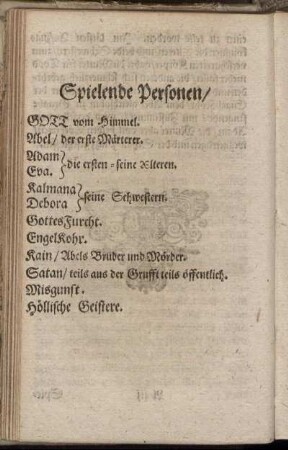 Spielende Personen/
GOTT vom Himmel.
Abel/ der erste Märterer.
Adam
Eva.
}die ersten-seine Ælteren.
Kalmana
Debora
}seine Schwestern.
GottesFurcht.
EngelKohr.
Kain/ Abels Bruder und Mörder.
Satan/ teils aus der Grufft teils öffentlich.
Misgunst.
Höllische Geistere.